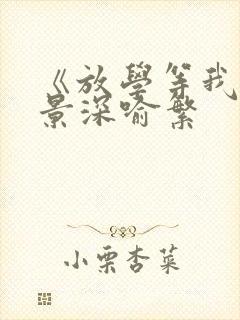 《放學等我
景深喻繁
小栗杏菜